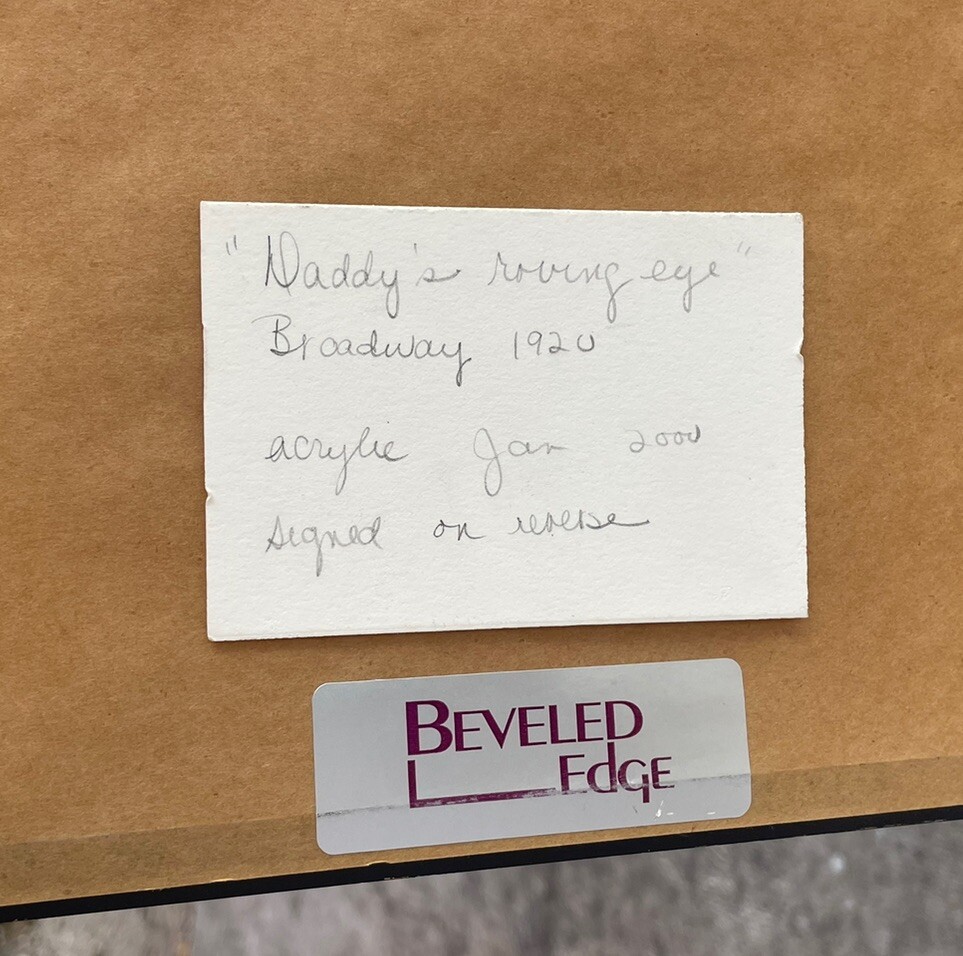 "Daddy's roving eye"
Broadway 1920
acrylic Jan 2000
signed on reverse
BEVELED
EdgE